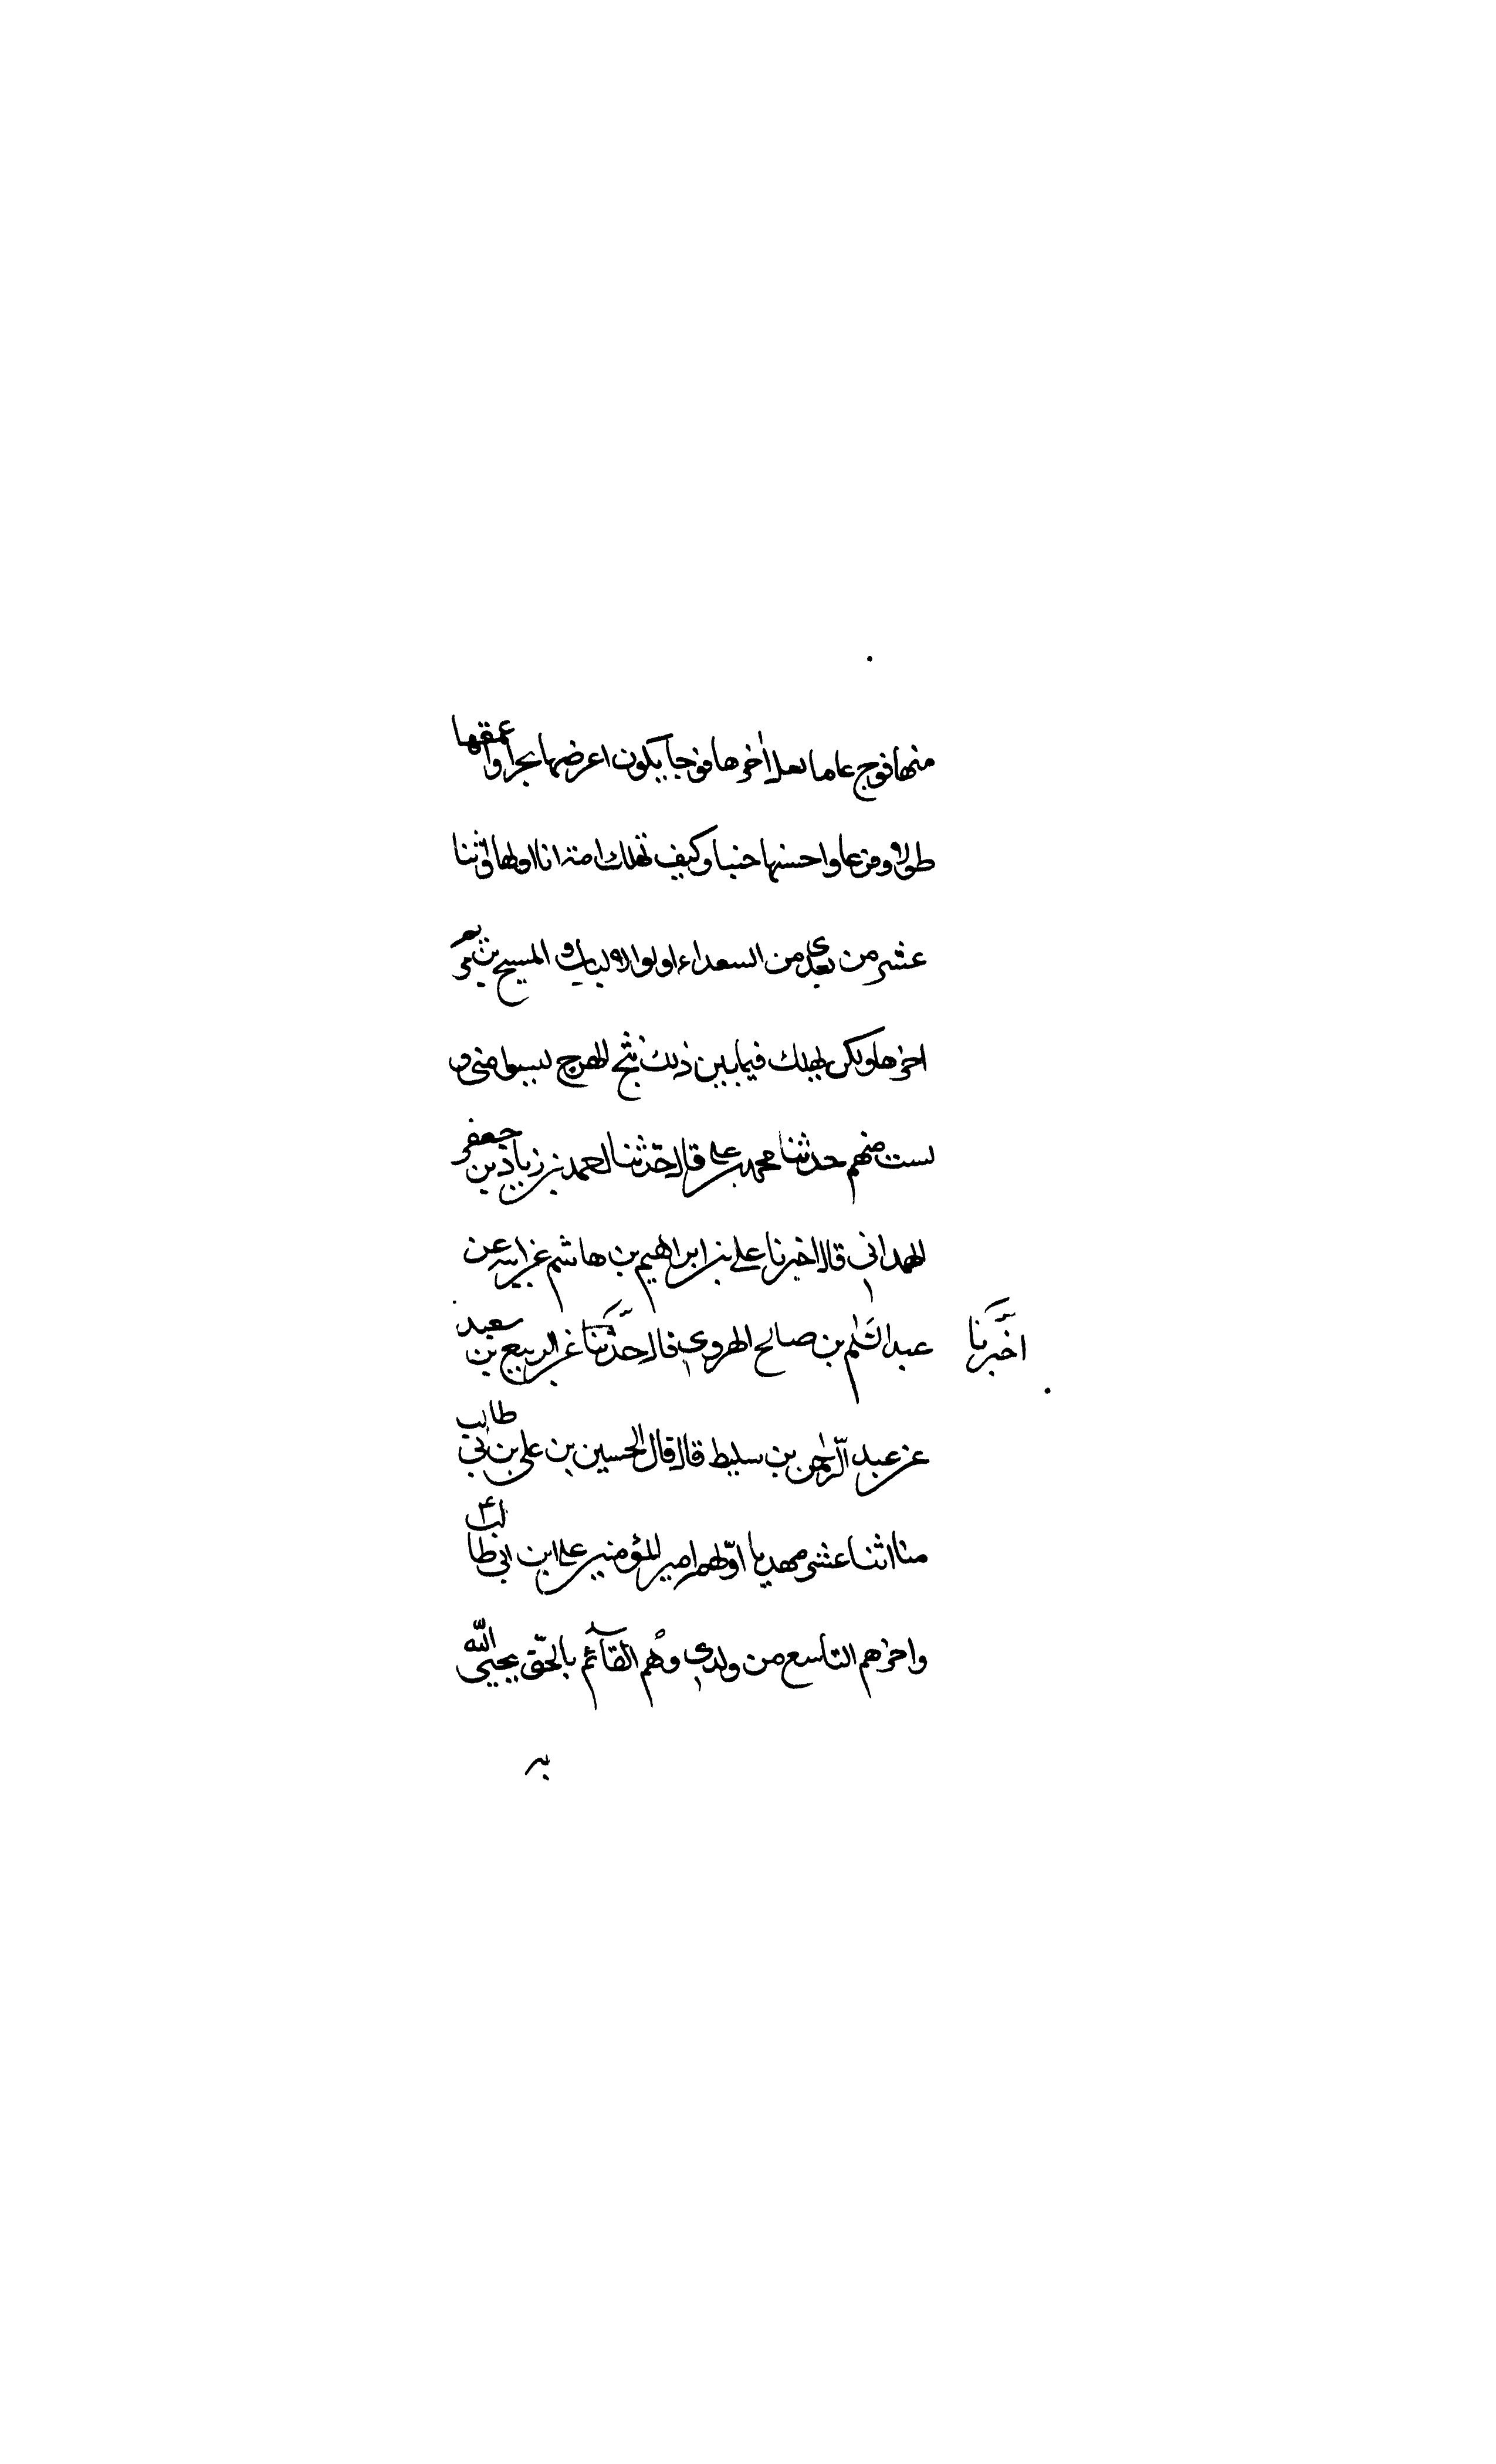 منها فوج عاما لعل اخرها فوجا يكون اعرضها بحرا واعمقها
طولا وفرعا واحسنها حنبا وكيف تهلك امة انا اولها واثنا
عشر من بعدى من السعداء اولوا الالباب و المسيح بن مريم
اخرها ولكن يهلك فيما بين ذلك نتج الهرج ليسوا منى و
لست منهم حدثنا محمد بن على قال حدثنا احمد بن زياد بن جعفر
الهمدانى قال اخبرنا على بن ابراهيم بن هاشم عن ابيه عن
عبد السلم بن صالح الهروي قال حدثنا عن الربيع بن سعيد
اخبرنا
عن عبد الرحمن بن سليط قال قال الحسين بن على بن ابى طالب
منا اثنا عشر مهديا اولهم امير المؤمنين على ابن ابى طالب ع
واخرهم التاسع من ولدي وهم القآئم بالحق يحيى الله
به